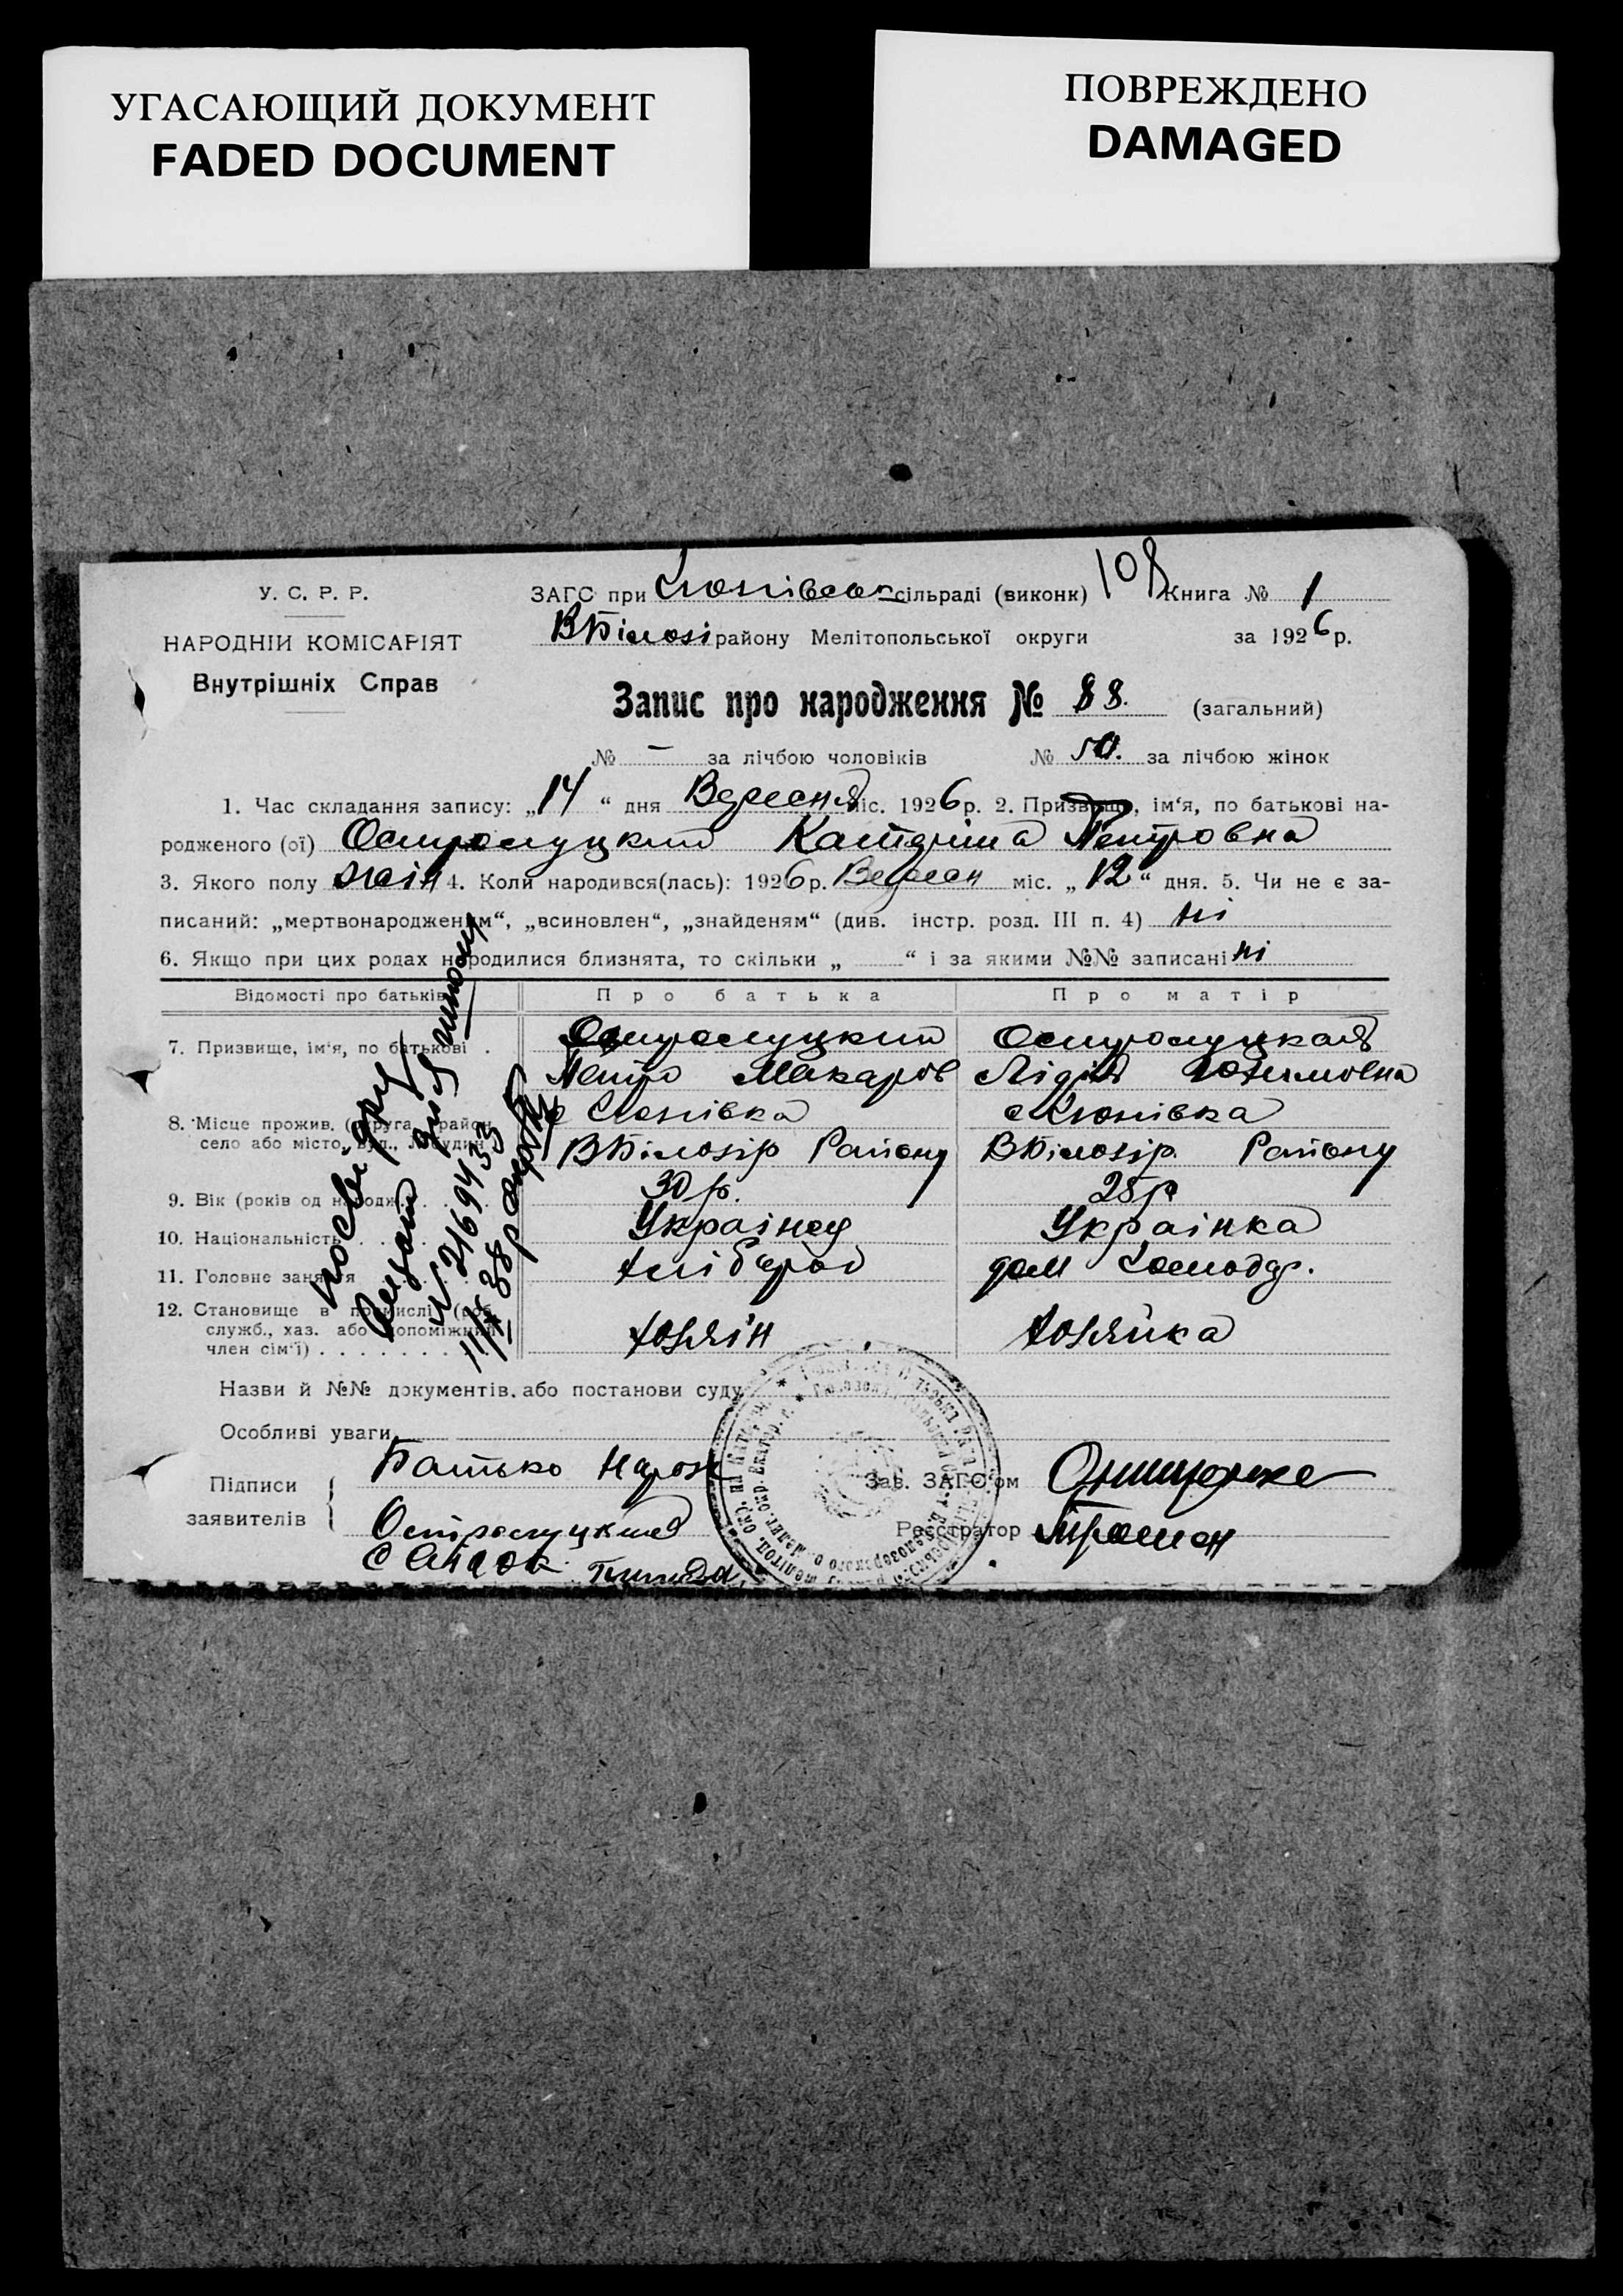 УГАСАЮЩИЙ ДОКУМЕНТ
FADED DOCUMENT
ПОВРЕЖДЕНО
DAMAGED
У. С. Р. Р.
НАРОДНІЙ КОМІСАРІЯТ
Внутрішніх Справ
ЗАГС при сільраді (виконк) 108 Книга № 1
ВБілозі району Мелітопольської округи за 1926 р.
Запис про народження № 88. (загальний)
№ — за лічбою чоловіків № 50. за лічбою жінок
1. Час складання запису: „14“ дня Вересня міс. 1926 р. 2. Призвище, ім'я, по батькові на-
родженого (ої) Остролуцкий Катеріна Петровна
3. Якого полу жін 4. Коли народився(лась): 1926 р. Вересен міс. „12“ дня. 5. Чи не є за-
писаний: „мертвонародженям“, „всиновлен“, „знайденям“ (див. інстр. розд. III п. 4) ні
6. Якщо при цих родах народилися близнята, то скільки „ “ і за якими №№ записані ні
Відомості про батьків Про батька Про матір
7. Призвище, ім'я, по батькові . Остролуцкий Остролуцкая
Петро Макаров Лідія Юхимовна
8. Місце прожив. (округа, район,
село або місто, вул., № будин.) ВБілозір Району ВБілозір. Району
9. Вік (років од народж.) 30 р. 25 р
10. Національність Украінец Украінка
11. Головне заняття хлібороб дом господар.
12. Становище в промислі (роб.
служб., хаз. або допоміжний
член сім'ї) хозяїн хозяйка
№ 2169433
Назви й №№ документів, або постанови суду
Особливі уваги
Підписи
заявителів
Батько
Остролуцкий
Зав. ЗАГС'ом
Реєстратор